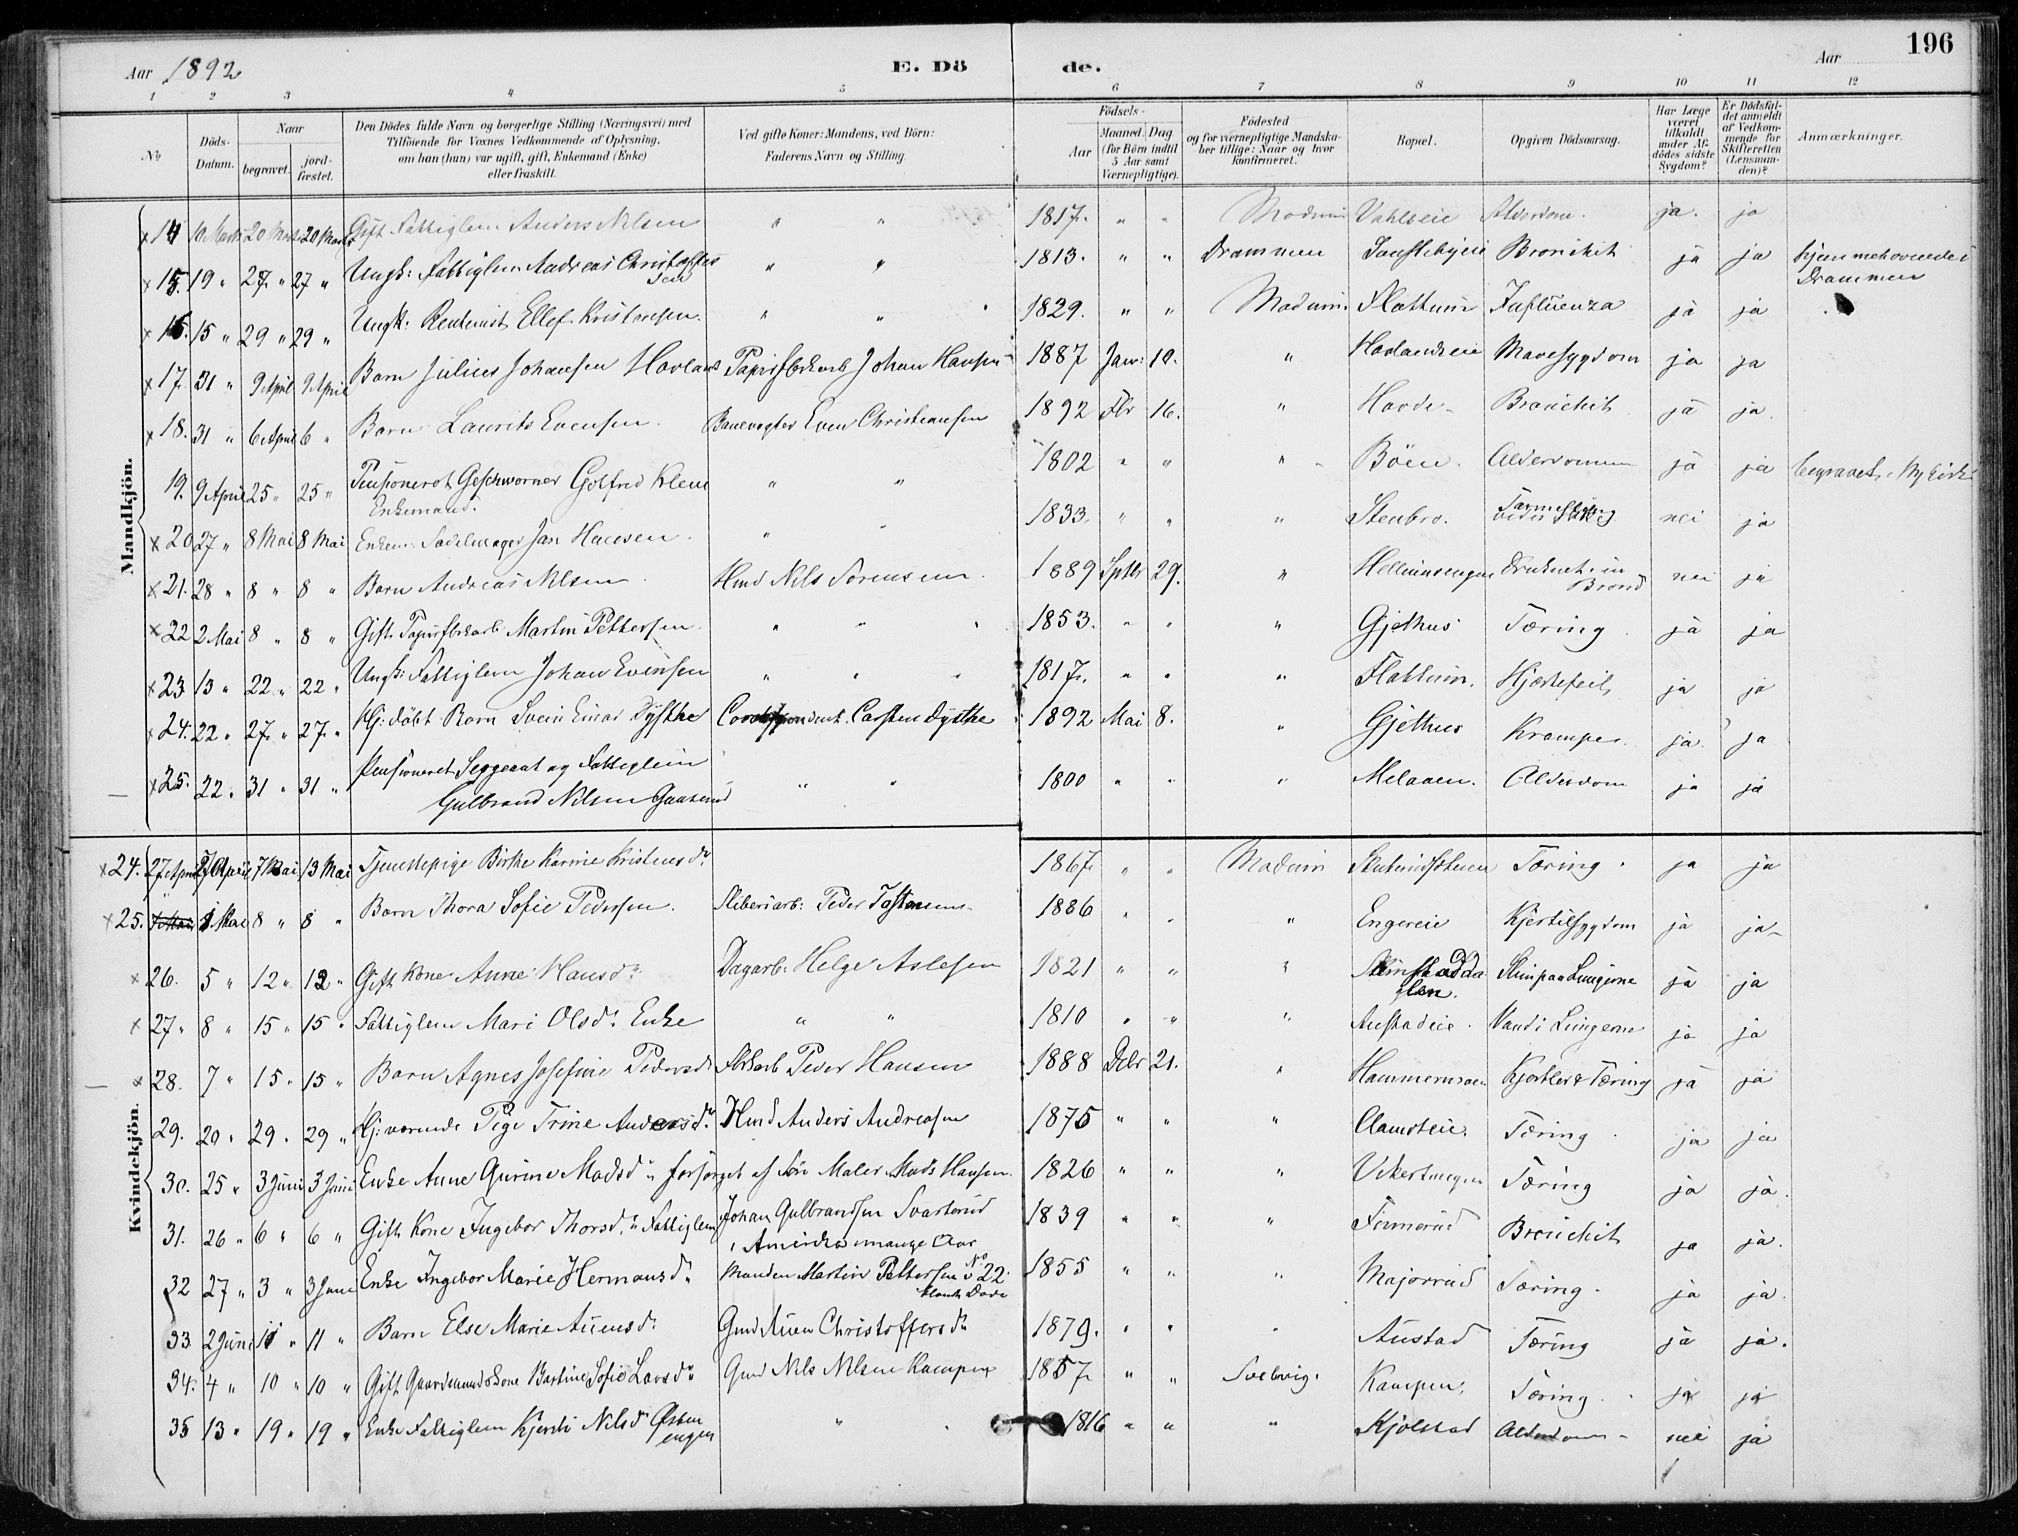 Aar 1892
E. Döde.
Aar
196
1 2 3 4 5 6 7 8 9 10 11 12
No
Döds-Datum.
Naar
begravet.
jordfæstet.
Den Dödes fulde Navn og borgerlige Stilling (Næringsvei) med Tilföiende for Voxnes Vedkommende af Oplysning, om han (hun) var ugift, gift, Enkemand (Enke) eller fraskilt.
Ved gifte Koner: Mandens, ved Börn: Faderens Navn og Stilling.
Födsels-
Aar
Maaned. Dag
(for Börn indtil 5 Aar samt Værnepligtige).
Födested og for værnepligtige Mandskaber tillige: Naar og hvor konfirmeret.
Bopæl.
Opgiven Dödsaarsag.
Har Læge været tilkaldt under Afdödes sidste Sygdom?
Er Dödsfaldet anmeldt af Vedkommende for Skifteretten (Lensmanden)?
Anmærkninger.
Mandkjön.
14 10 Marts 20 Marts 20 Marts Gift Fattiglem Anders Nilsen " " 1817. " " Modum Vahlseie Alderdom. ja. ja
15. 19 " 27 " 27 " Ungk: Fattiglem Andreas Christoffersen " " 1813. " " Drammen Bronchit ja ja hjemmehørende i Drammen
16. 15 " 29 " 29 " Ungk: Rentenist Ellef Kristensen. " " 1829. " " Modum Flattum Influenza ja ja
17. 31 " 9 April 9 April Barn Julius Johansen Hovland Papirfbrkarb Johan Hansen 1887 Janr: 10. " Hovlandseie Mavesygdom ja ja
18. 31 " 6 April 6 " Barn Laurits Evensen. Banevogter Even Christiansen 1892 Fbr 16. " Hovde Bronchit ja ja.
19. 9 April 25 " 25 " Pensioneret Geschworner Gotfred Klem Enkemand. " " 1802 " " " Böen. Alderdommen ja ja begravet i Nykirke
20 27 " 8 Mai 8 Mai Enkem. Sadelmager Jan Hansen. " 1833. " " " Stenbro. nei ja
21. 28 " 8 " 8 " Barn Andreas Nilsen. Hmd Nils Sorensen. 1889 Sptbr 29. " Druknet i en Brønd nei ja
22 2 Mai 8 " 8 " Gift Papirfbrkarb. Martin Pettersen. " " 1853. " " " Gjethus Tæring ja ja
23 13 " 22 " 22 " Ungk: Fattiglem Johan Evensen " " 1817. " " " Flattum. Hjertefeil ja ja
24. 22 " 27 " 27 " Hj: døbt Barn Svein Einar Dysthe Correspondent Carsten Dysthe 1892 Mai 8. " Gjethus Kramper. ja. ja
25. 22. " 31 " 31 " Pensioneret Sergeant og Fattiglem Gulbrand Nilsen Gaaserud " " 1800 " " " Melaaen. Alderdom ja ja
Kvindekjön.
24. 27 April 7 Mai 13 Mai Tjenestepige Birthe Karine Kristensdr 1867 " " Modum Tæring ja ja
25. 1 Mai 8 " 8 " Barn Thora Sofie Pedersen. Sliberiarb: Peder Tostensen 1886 " " " Engereie Kjertelsygdom ja ja
26. 5 " 12 " 12 " Gift Kone Anne Hansdr. Dagarb. Helge Aslesen 1821 " " " Slim paa Lungerne ja ja
27 " 8 " 15 " 15 " Fattiglem Mari Olsdr Enke " " 1810 " " " Austadeie. Vand i Lungerne ja ja
28. 7 " 15 " 15 " Barn Agnes Josefine Pedersdr Fbrkarb Peder Hansen 1888 Debr 21. " Hammermoen Kjertler & Tæring ja ja
29. 20 " 29 " 29 " Hj: værende Pige Trine Andersdr. Hmd Anders Andreasen 1875 " " " Tæring ja ja
30. 25 " 3 Juni 3 Juni Enke Anne Gurine Madsdr forsørget af Søn Maler Mads Hansen. 1826 " " " Vikersengen Tæring ja ja.
31. 26 " 6 " 6 " Gift Kone Ingebor Thorsdr Fattiglem Johan Gulbrandsen Svarterud i Amerika mange Aar 1839 " " " Finnerud Bronchit ja ja.
32 27 " 3 " 3 Juni Enke Ingebor Marie Hermansdr Manden Martin Pettersen No 22 blandt Døde 1855 " " " Majorrud Tæring. ja ja.
33. 2 Juni 11 " 11 " Barn Else Marie Auensdr. Gmd Auen Christoffersdr 1879. " " " Austad Tæring ja ja.
34. 4 " 10 " 10 " Gift Gaardmandskone Bertine Sofie Larsdr Gmd Nils Nilsen Kampen 1857 " " Svelvig. Kampen. Tæring. ja ja
35 13 " 19 " 19 " Enke Fattiglem Kjersti Nilsdr Østen engen " 1816 " " " Kjølstad Alderdom nei ja